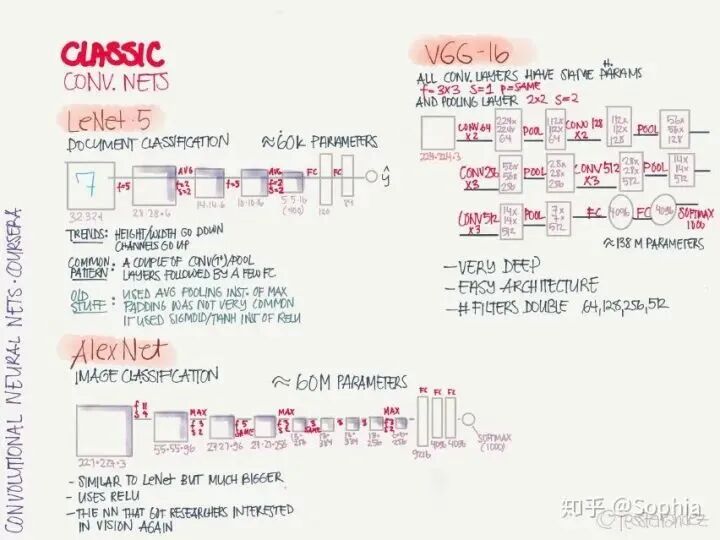 CLASSIC
CONV. NETS
LeNet-5
DOCUMENT CLASSIFICATION
≈60K PARAMETERS
7
f=5
AVG
f=2
s=2
f=5
AVG
f=2
s=2
FC
FC
ŷ
32·32·1
28·28·6
14·14·6
10·10·16
5·5·16
(400)
120
84
TRENDS: HEIGHT/WIDTH GO DOWN
CHANNELS GO UP
COMMON PATTERN: A COUPLE OF CONV(1+)/POOL
LAYERS FOLLOWED BY A FEW FC
OLD STUFF: USED AVG POOLING INST. OF MAX
PADDING WAS NOT VERY COMMON
IT USED SIGMOID/TANH INST OF RELU
AlexNet
IMAGE CLASSIFICATION
≈ 60M PARAMETERS
f 11
s 4
MAX
f 3
s 2
f 5
SAME
MAX
f 3
s 2
SAME
MAX
FC
FC
FC
227·227·3
55·55·96
27·27·96
27·27·256
9216
4096
4096
SOFTMAX
(1000)
- SIMILAR TO LeNet BUT MUCH BIGGER
- USES RELU
- THE NN THAT GOT RESEARCHERS INTERESTED
IN VISION AGAIN
VGG-16
ALL CONV. LAYERS HAVE SAME PARAMS
f=3x3 s=1 p=SAME
AND POOLING LAYER 2x2 s=2
224·224·3
CONV 64
x2
224x
224x
64
POOL
112x
112x
64
CONV 128
x2
112x
112x
128
POOL
56x
56x
128
CONV 256
x3
56x
56x
256
POOL
28x
28x
256
CONV 512
x3
28x
28x
512
POOL
14x
14x
512
CONV 512
x3
14x
14x
512
POOL
7x
7x
512
FC
4096
FC
4096
SOFTMAX
1000
≈138 M PARAMETERS
- VERY DEEP
- EASY ARCHITECTURE
- # FILTERS DOUBLE 64,128,256,512
CONVOLUTIONAL NEURAL NETS · COURSERA
知乎 @Sophia